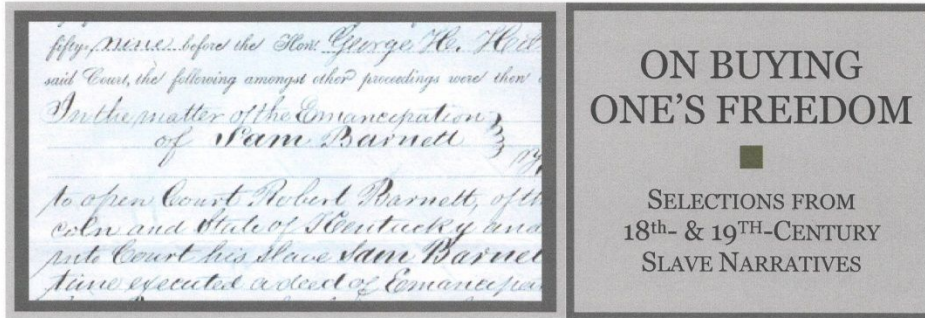 fifty-nine before the Hon: George H. Hit
said Court, the following amongst other proceedings were then
In the matter of the Emancipation
of Sam Barnett
to open Court Robert Barnett, of th
coln and State of Kentucky and
into Court his slave Sam Barnet
time executed a deed of Emancipa
ON BUYING
ONE'S FREEDOM
SELECTIONS FROM
18th- & 19TH-CENTURY
SLAVE NARRATIVES